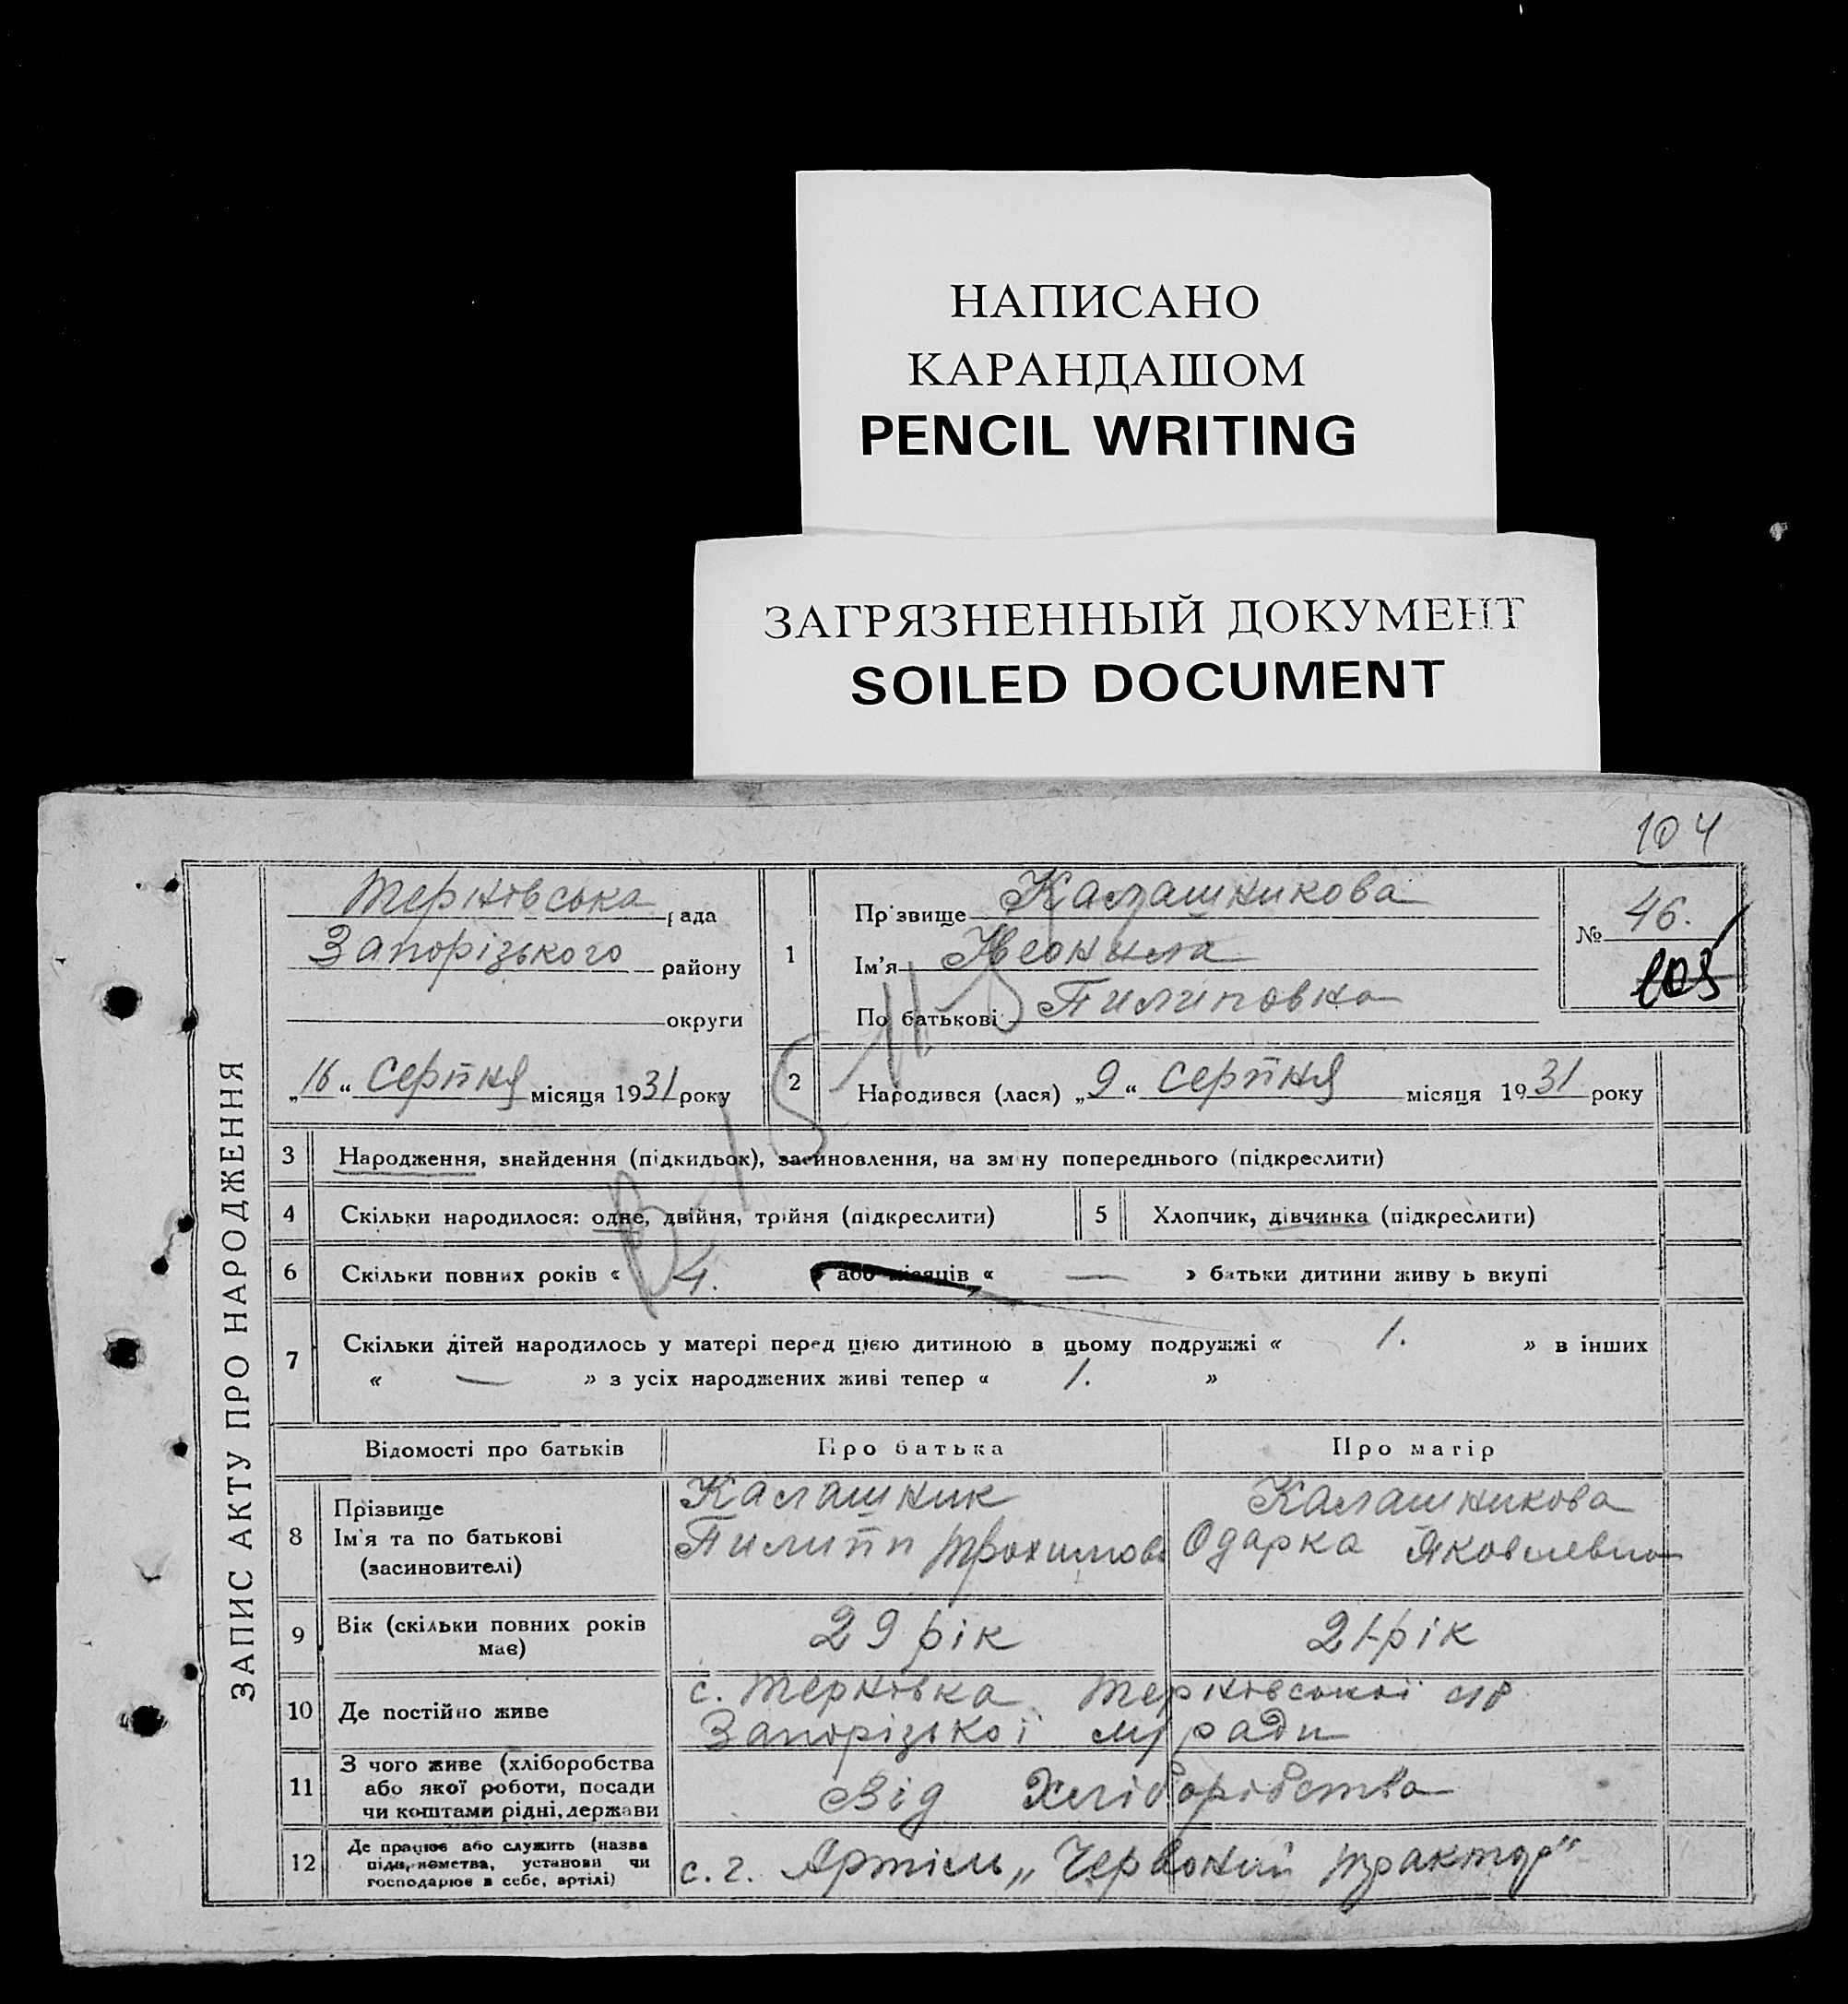 НАПИСАНО
КАРАНДАШОМ
PENCIL WRITING
ЗАГРЯЗНЕННЫЙ ДОКУМЕНТ
SOILED DOCUMENT
104
ЗАПИС АКТУ ПРО НАРОДЖЕННЯ
Тернівська рада
Запорізького району
округи
„16“ серпня місяця 1931 року
1
Прізвище Калашникова
Ім'я Неонила
По батькові Пилиповна
№ 46.
103
2
Народився (лася) „9“ серпня місяця 1931 року
3 Народження, знайдення (підкидьок), засиновлення, на зміну попереднього (підкреслити)
4 Скільки народилося: одне, двійня, трійня (підкреслити) 5 Хлопчик, дівчинка (підкреслити)
6 Скільки повних років « 4. » або місяців « — » батьки дитини живуть вкупі
7 Скільки дітей народилось у матері перед цією дитиною в цьому подружжі « 1. » в інших
« — » з усіх народжених живі тепер « 1. »
Відомості про батьків Про батька Про матір
8 Прізвище
Ім'я та по батькові
(засиновителі)
Калашник
Пилипп Трохимов
Калашникова
Одарка Яковлевна
9 Вік (скільки повних років
має)
29 рік 21-рік
10 Де постійно живе
с. Тернівка Тернівської с/р
Запорізької м/ради
11 З чого живе (хліборобства
або якої роботи, посади
чи коштами рідні, держави
Від Хліборобства
12 Де працює або служить (назва
підприємства, установи чи
господарює в себе, артілі)
с. г. Артіль „Червоний трактор"